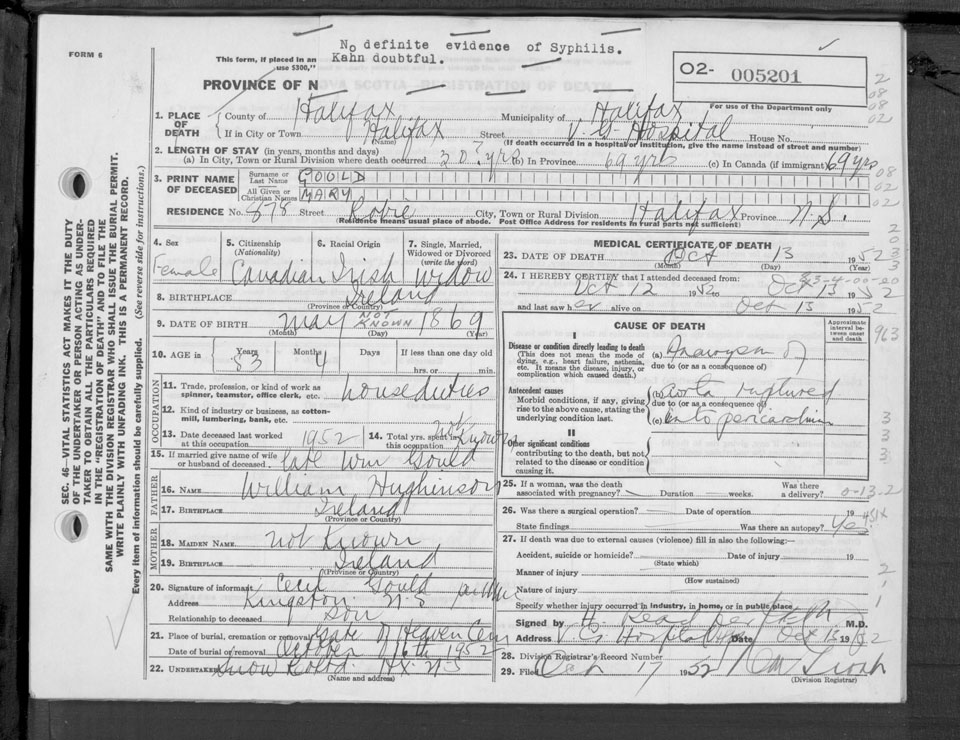 FORM 6
No definite evidence of Syphilis.
Kahn doubtful.
This form, if placed in an
use $300,"
PROVINCE OF NOVA SCOTIA—REGISTRATION OF DEATH
O2- 005201
For use of the Department only
1. PLACE OF DEATH
County of Halifax Municipality of Halifax
If in City or Town Halifax Street V. G. Hospital House No.
(Name) (If death occurred in a hospital or institution, give the name instead of street and number)
2. LENGTH OF STAY (in years, months and days)
(a) In City, Town or Rural Division where death occurred 30? yrs (b) In Province 69 yrs (c) In Canada (if immigrant) 69 yrs
3. PRINT NAME OF DECEASED
Surname or Last Name GOULD
All Given or Christian Names MARY
RESIDENCE No. 878 Street Robie City, Town or Rural Division Halifax Province N.S.
(Residence means usual place of abode. Post Office Address for residents in rural parts not sufficient)
4. Sex Female
5. Citizenship (Nationality) Canadian
6. Racial Origin Irish
7. Single, Married, Widowed or Divorced (write the word) Widow
8. BIRTHPLACE Ireland
(Province or Country)
9. DATE OF BIRTH May NOT KNOWN 1869
(Month) (Day) (Year)
10. AGE in Years 83 Months 4 Days If less than one day old
hrs. or min.
OCCUPATION
11. Trade, profession, or kind of work as spinner, teamster, office clerk, etc. house duties
12. Kind of industry or business, as cotton-mill, lumbering, bank, etc.
13. Date deceased last worked at this occupation 1952
14. Total yrs. spent in this occupation not known
15. If married give name of wife or husband of deceased. late Wm Gould
FATHER
16. NAME William Hughinson
17. BIRTHPLACE Ireland
(Province or Country)
MOTHER
18. MAIDEN NAME not Known
19. BIRTHPLACE Ireland
(Province or Country)
20. Signature of informant Cecil Gould
Address Kingston N.S
Relationship to deceased Son
21. Place of burial, cremation or removal Gate of Heaven Cem
Date of burial or removal October 16th 1952
22. UNDERTAKER Snow & Co Ltd. Hx. N.S
(Name and address)
MEDICAL CERTIFICATE OF DEATH
23. DATE OF DEATH Oct 13 1952
(Month) (Day) (Year)
24. I HEREBY CERTIFY that I attended deceased from:
Oct 12 1952 to Oct 13 1952
and last saw her alive on Oct 13 1952
CAUSE OF DEATH
Approximate interval between onset and death
Disease or condition directly leading to death
(This does not mean the mode of dying, e.g., heart failure, asthenia, etc. It means the disease, injury, or complication which caused death.)
(a) Aneurysm of
due to (or as a consequence of)
Antecedent causes
Morbid conditions, if any, giving rise to the above cause, stating the underlying condition last.
(b) aorta ruptured
due to (or as a consequence of)
(c) into pericardium
II
Other significant conditions
contributing to the death, but not related to the disease or condition causing it.
25. If a woman, was the death associated with pregnancy? Duration weeks. Was there a delivery?
26. Was there a surgical operation? Date of operation 19
State findings Was there an autopsy? Yes
27. If death was due to external causes (violence) fill in also the following:—
Accident, suicide or homicide? Date of injury 19
(State which)
Manner of injury
(How sustained)
Nature of injury
Specify whether injury occurred in industry, in home, or in public place.
Signed by M.D.
Address V. G. Hospital Date Oct 13 1952
28. Division Registrar's Record Number
29. Filed Oct 17 1952
(Division Registrar)
SEC. 46—VITAL STATISTICS ACT MAKES IT THE DUTY
OF THE UNDERTAKER OR PERSON ACTING AS UNDER-
TAKER TO OBTAIN ALL THE PARTICULARS REQUIRED
IN THE "REGISTRATION OF DEATH" AND TO FILE THE
SAME WITH THE DIVISION REGISTRAR WHO SHALL ISSUE THE BURIAL PERMIT.
WRITE PLAINLY WITH UNFADING INK. THIS IS A PERMANENT RECORD.
Every item of information should be carefully supplied. (See reverse side for instructions.)